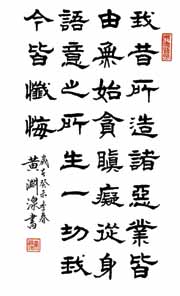 我昔所造諸惡業皆
由無始貪瞋癡從身
語意之所生一切我
今皆懺悔
癸未季春
黃淵書